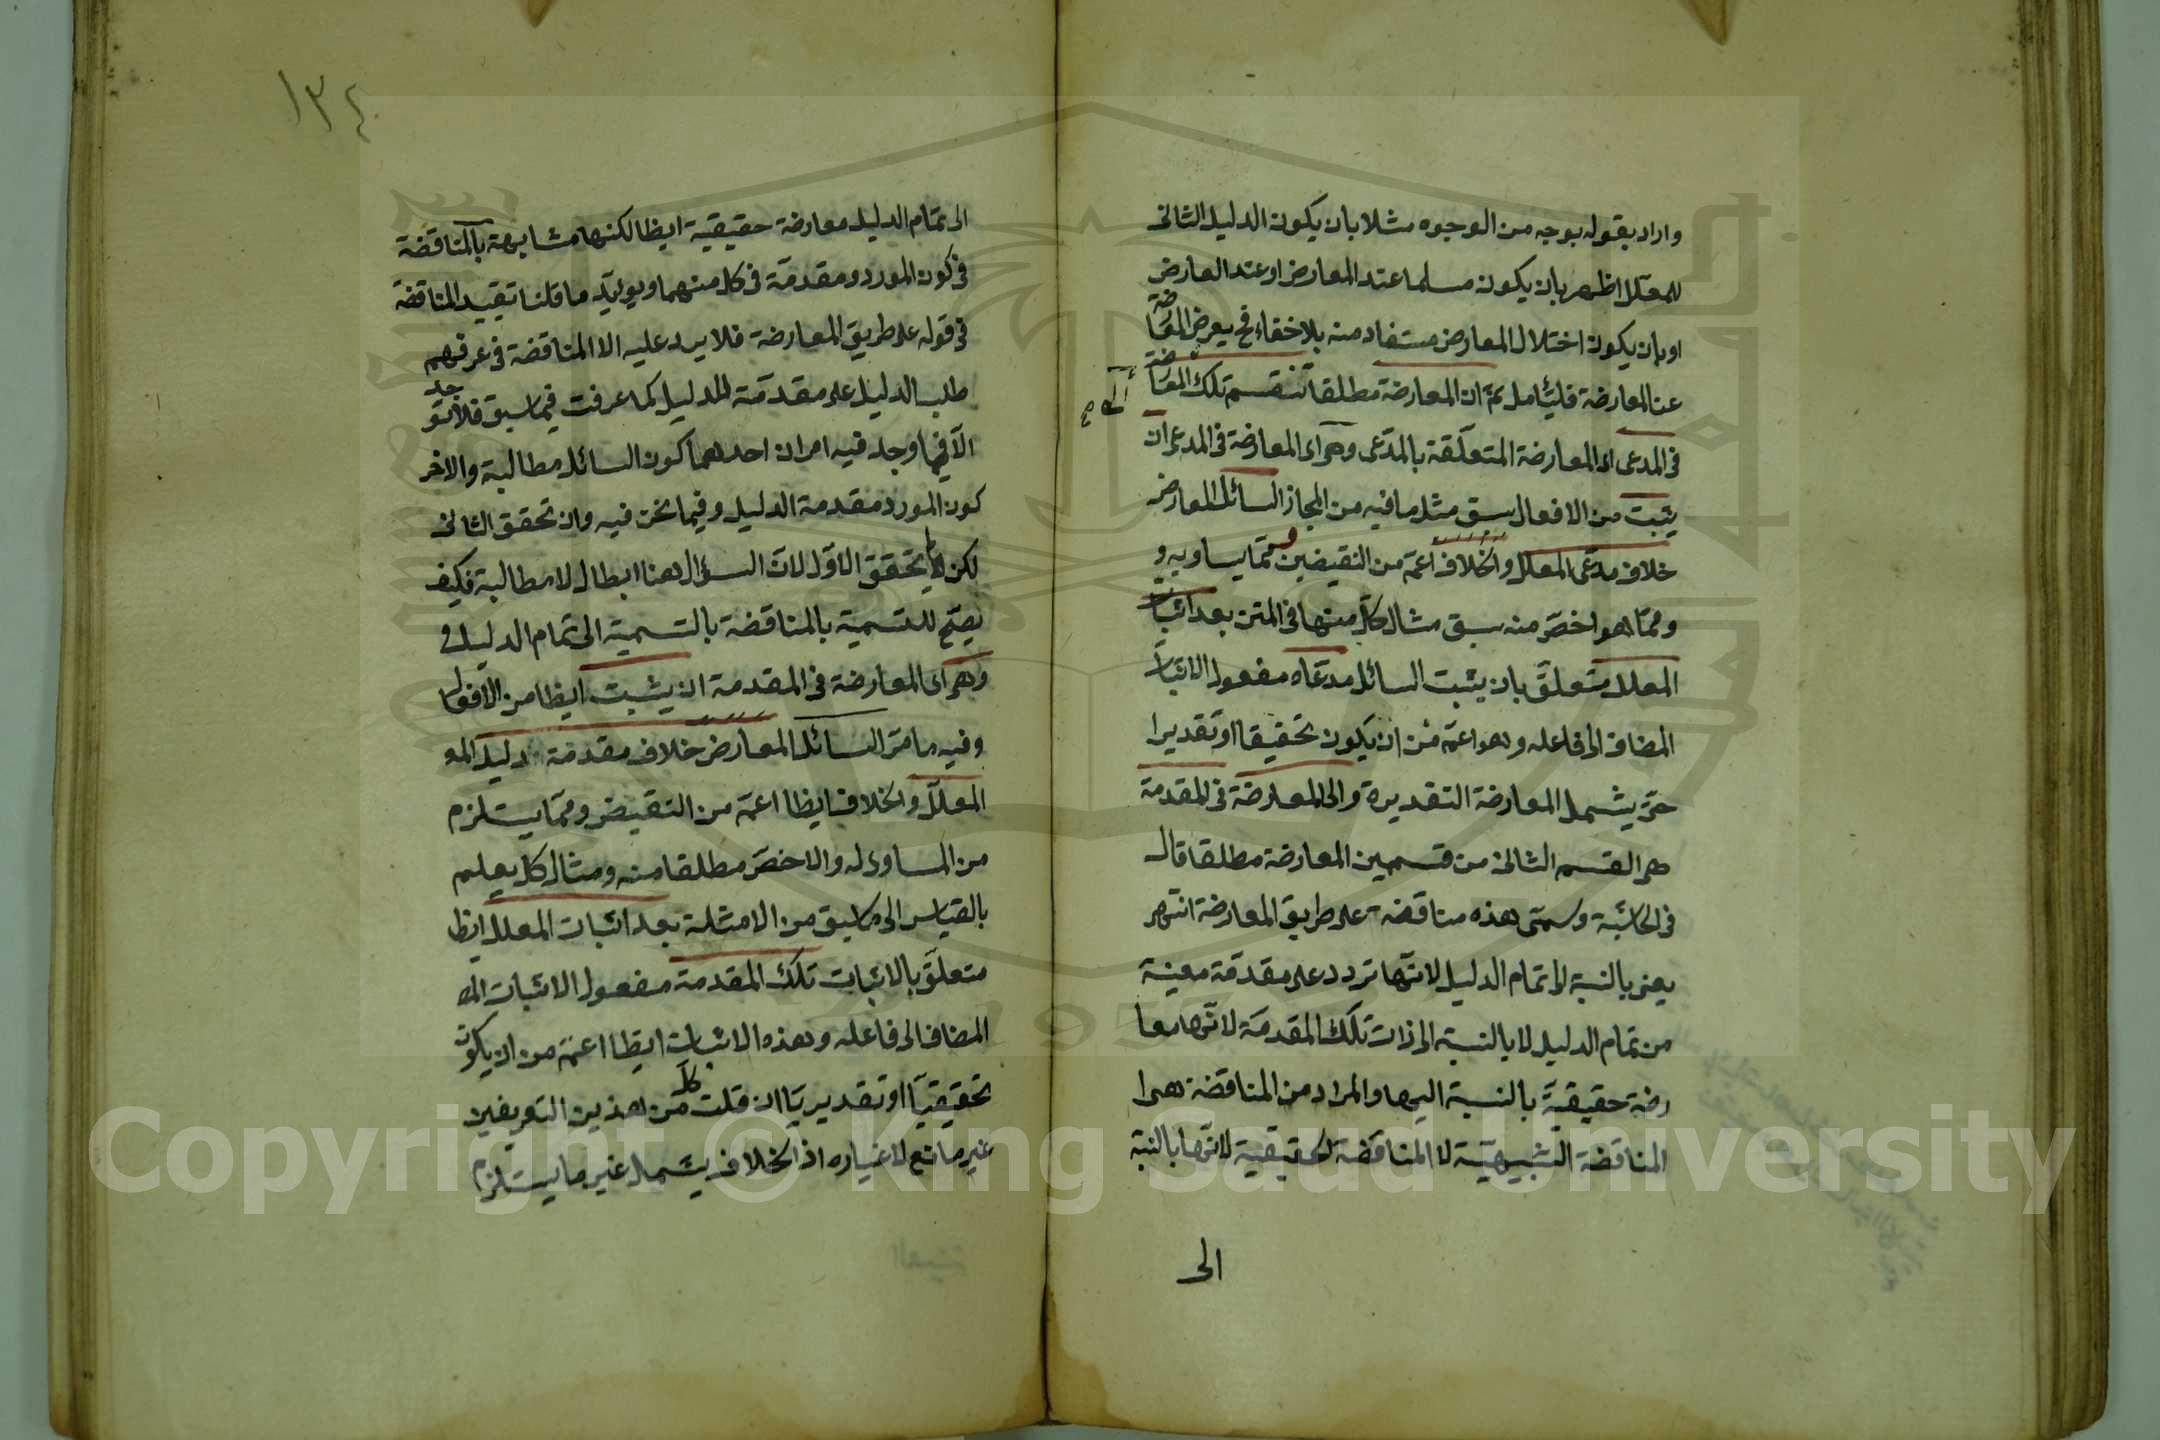 واراد بقوله بوجه من الوجوه مثلا بان يكون الدليل الثانى
للمعلل اظهر بان يكون مسلما عند المعارض او عند العارض
او بان يكون اختلال المعارض مستفاد منه بلا خفاء فح يعرض المعارضة
عن المعارضة فليتأمل ثم ان المعارضة مطلقا تنقسم تلك المعارضة
فى المدعى اى المعارضة المتعلقة بالمدعى وهى اى المعارضة فى المدعى ان
يثبت من الافعال سبق مثل ما فيه من المجاز السائل المعارض
خلاف مدعى المعلل والخلاف اعم من النقيضين ومما يساويه و
ومما هو اخص منه سبق مثال كل منها فى المتن بعد اثبات
المعلل متعلق بان يثبت السائل مدعاه مفعول الاثبات
المضاف الى فاعله وهو اعم من ان يكون تحقيقا او تقديرا
حتى يشمل المعارضة التقديرة والى المعارضة فى المقدمة
هى القسم الثانى من قسمين المعارضة مطلقا قال
فى الحاشية وسمى هذه مناقضة على طريق المعارضة انتهى
يعنى بالنسبة الى تمام الدليل لانها تردد على مقدمة معينة
من تمام الدليل لا بالنسبة الى ذات تلك المقدمة لانها معا
رضة حقيقية بالنسبة اليها والمراد من المناقضة هى ا
المناقضة التشبيهية لا المناقضة الحقيقية لانها بالنسبة
الى
١٣٤
الى تمام الدليل معارضة حقيقية ايظا لكنها مشابهة بالمناقضة
فى كون المورد ومقدمة فى كل منهما ويؤيد ما قلنا تقييد المناقضة
فى قوله على طريق المعارضة فلا يرد عليه الا المناقضة فى عرفهم
طلب الدليل على مقدمة الدليل كما عرفت فيما سبق فلا توجد
الا فيما وجد فيه امران احدهما كون السائل مطالبة والاخر
كون المورد مقدمة الدليل وفيما نحن فيه وان تحقق الثانى
لكن لا يتحقق الاول لان السؤال هنا ابطال لا مطالبة فكيف
يصح للتسمية بالمناقضة بالتسمية الى تمام الدليل و
وهى اى المعارضة فى المقدمة ان يثبت ايظا من الافعال
وفيه ما مر السائل المعارض خلاف مقدمة دليل المع
المعلل والخلاف ايظا اعم من النقيض ومما يستلزم
من المساوى له والاخص مطلقا منه ومثال كل يعلم
بالقياس الى ما سبق من الامثلة بعد اثبات المعلل ايظ
متعلق بالاثبات تلك المقدمة مفعول الاثبات المض
المضاف الى فاعله وهذه الاثبات ايظا اعم من ان يكون
تحقيقيا او تقديريا ان قلت كل من هذين التعريفين
غير مانع لاغياره اذ الخلاف يشمل غير ما يستلزم
Copyright © King Saud University